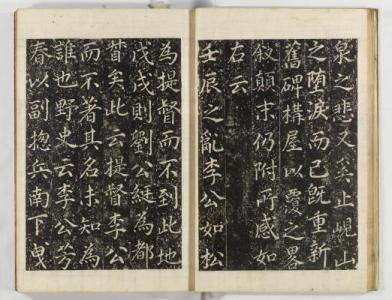 泉之悲又奚止峴山
之堕淚而已既重新
舊碑構屋以覆之畧
敘顛末仍附所感如
右云
壬辰之亂李公如松
為提督而不到此地
戊戌則劉公綎為都
督矣此云提督李公
而不著其名未知為
誰也野史云李公芳
春以副揔兵南下曳